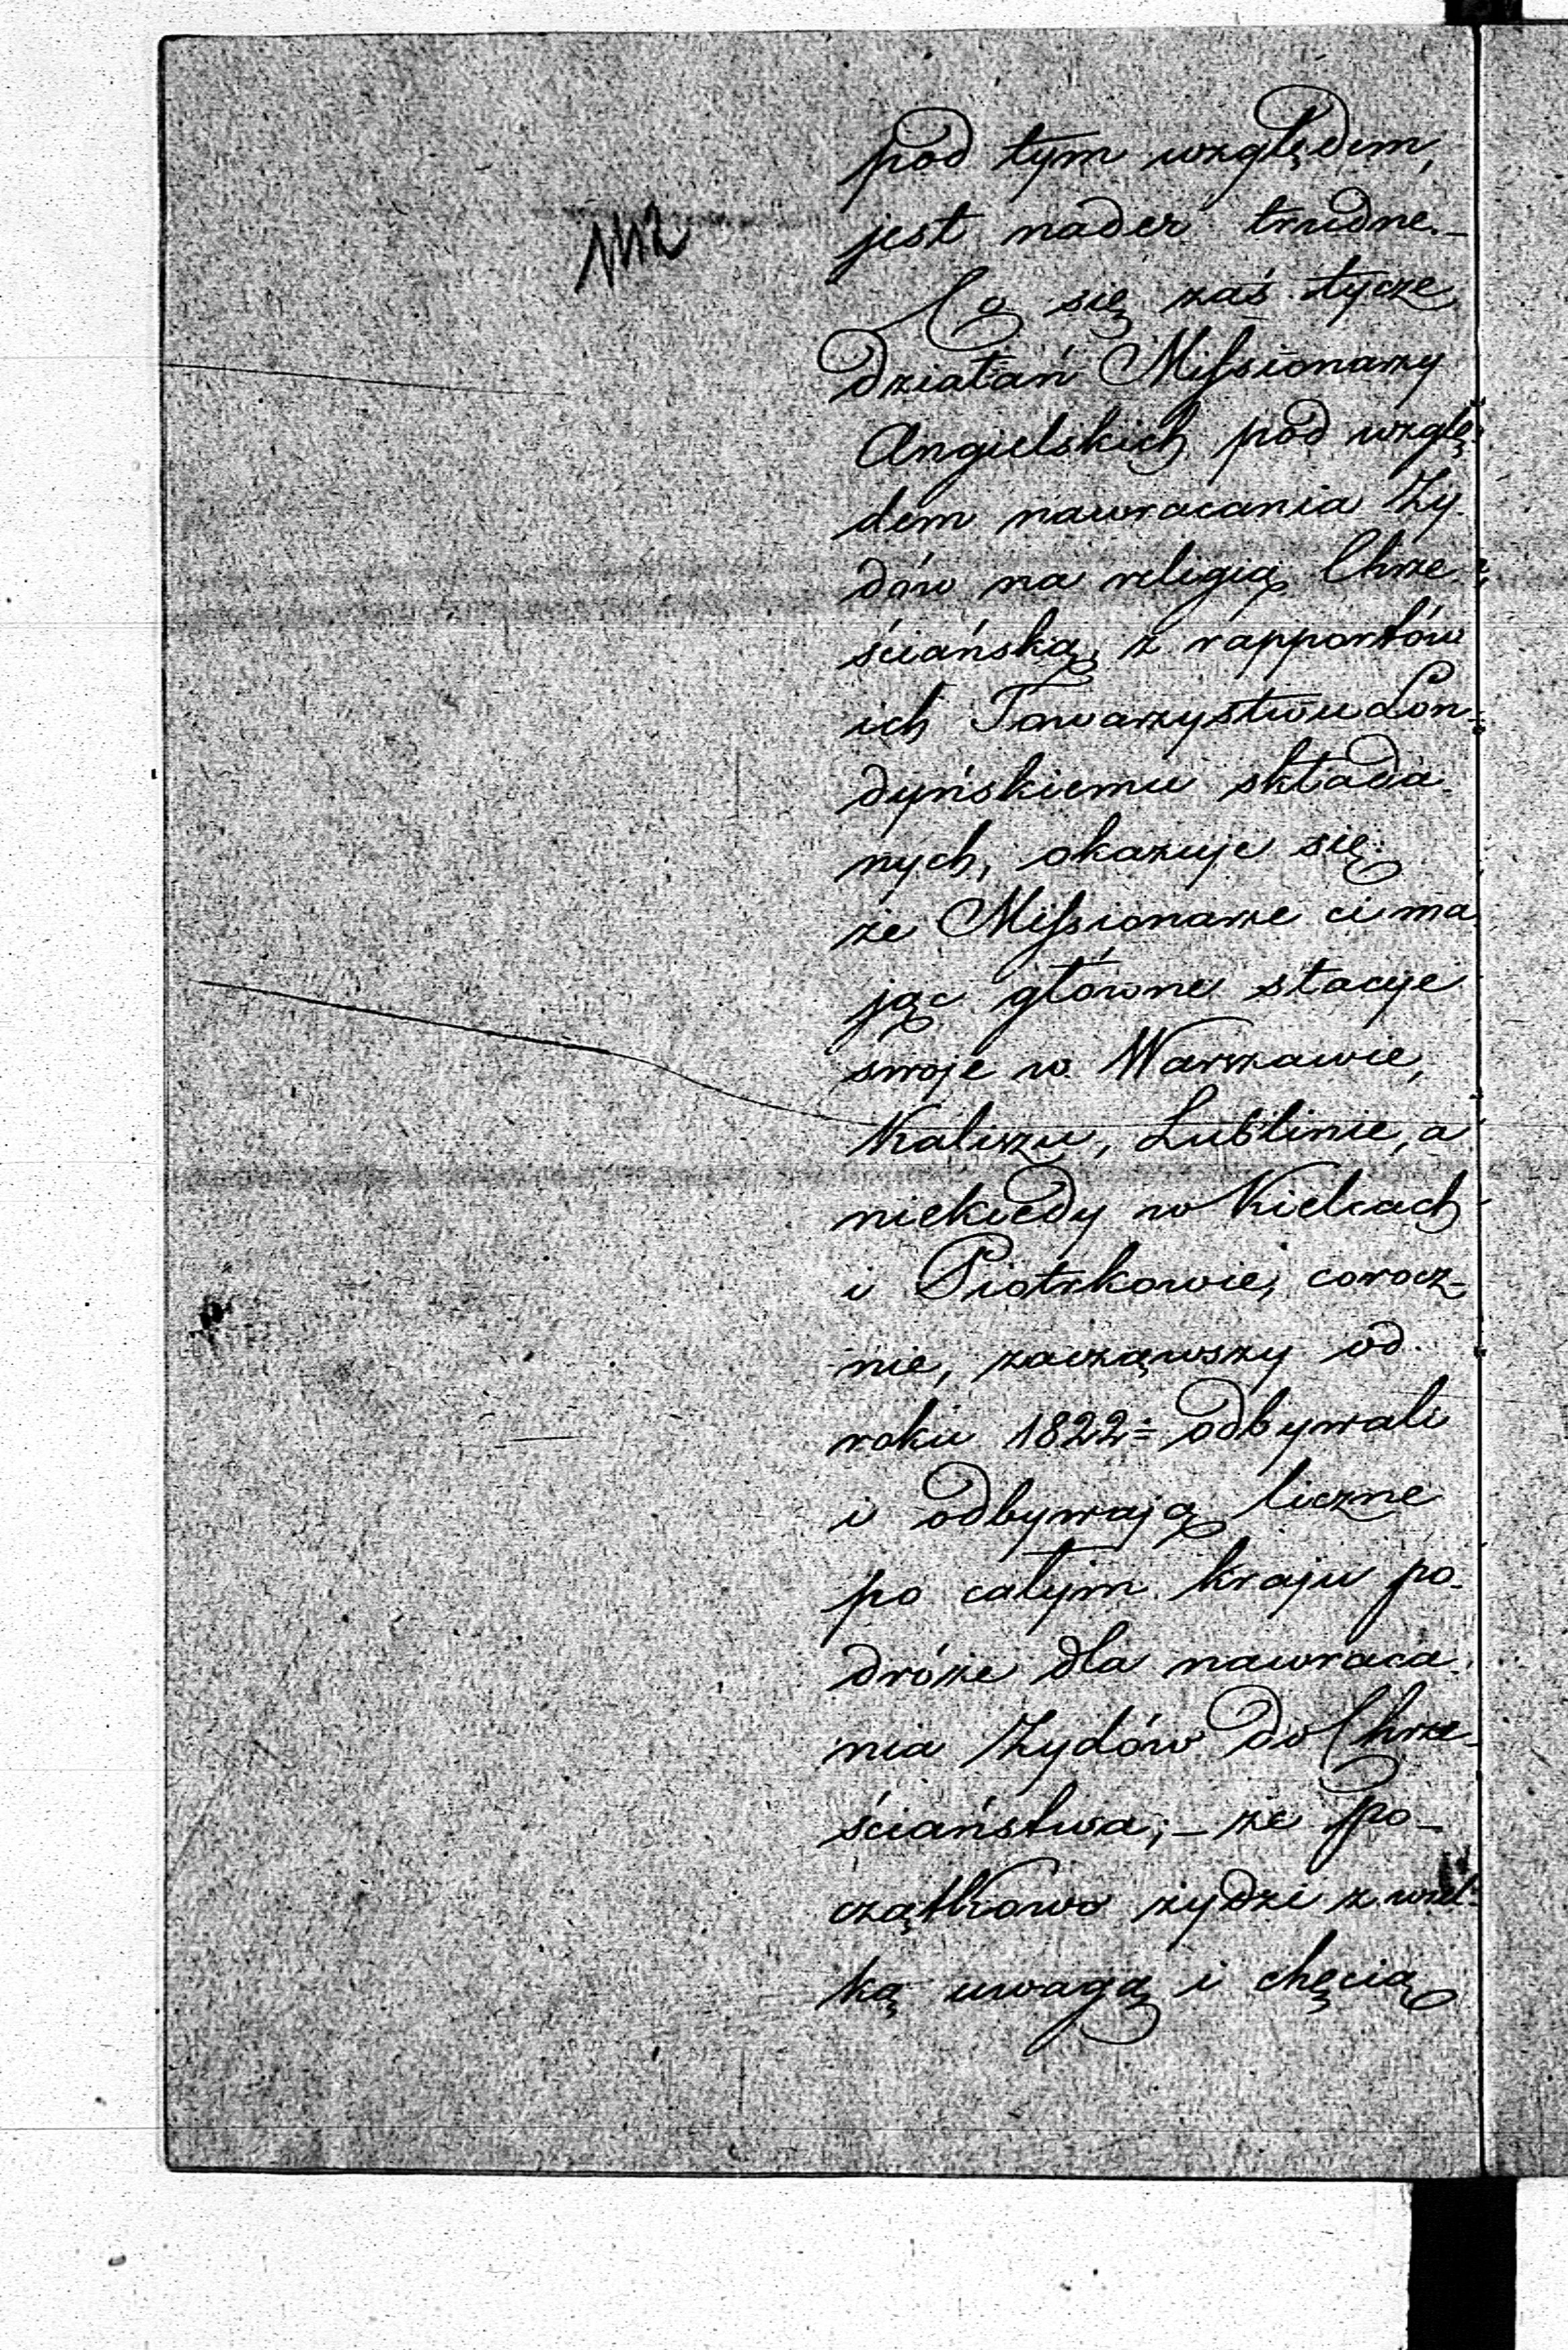 1112
pod tym względem,
jest nader trudne.—
Co się zaś tycze
działań Missionarzy
Angielskich pod wzglę-
dem nawracania Ży-
dów na religią Chrze-
ściańską, z rapportów
ich Towarzystwu Lon-
dyńskiemu składa-
nych, okazuje się:
że Missionarze ci ma
jąc główne stacye
swoje w Warszawie,
Kaliszu, Lublinie, a
niekiedy w Kielcach
i Piotrkowie, corocz-
nie, zacząwszy od
roku 1822= odbywali
i odbywają liczne
po całym kraju po-
dróże dla nawraca-
nia Żydów do Chrze-
ściaństwa; — że po-
czątkowo żydzi z wiel-
ką uwagą i chęcią